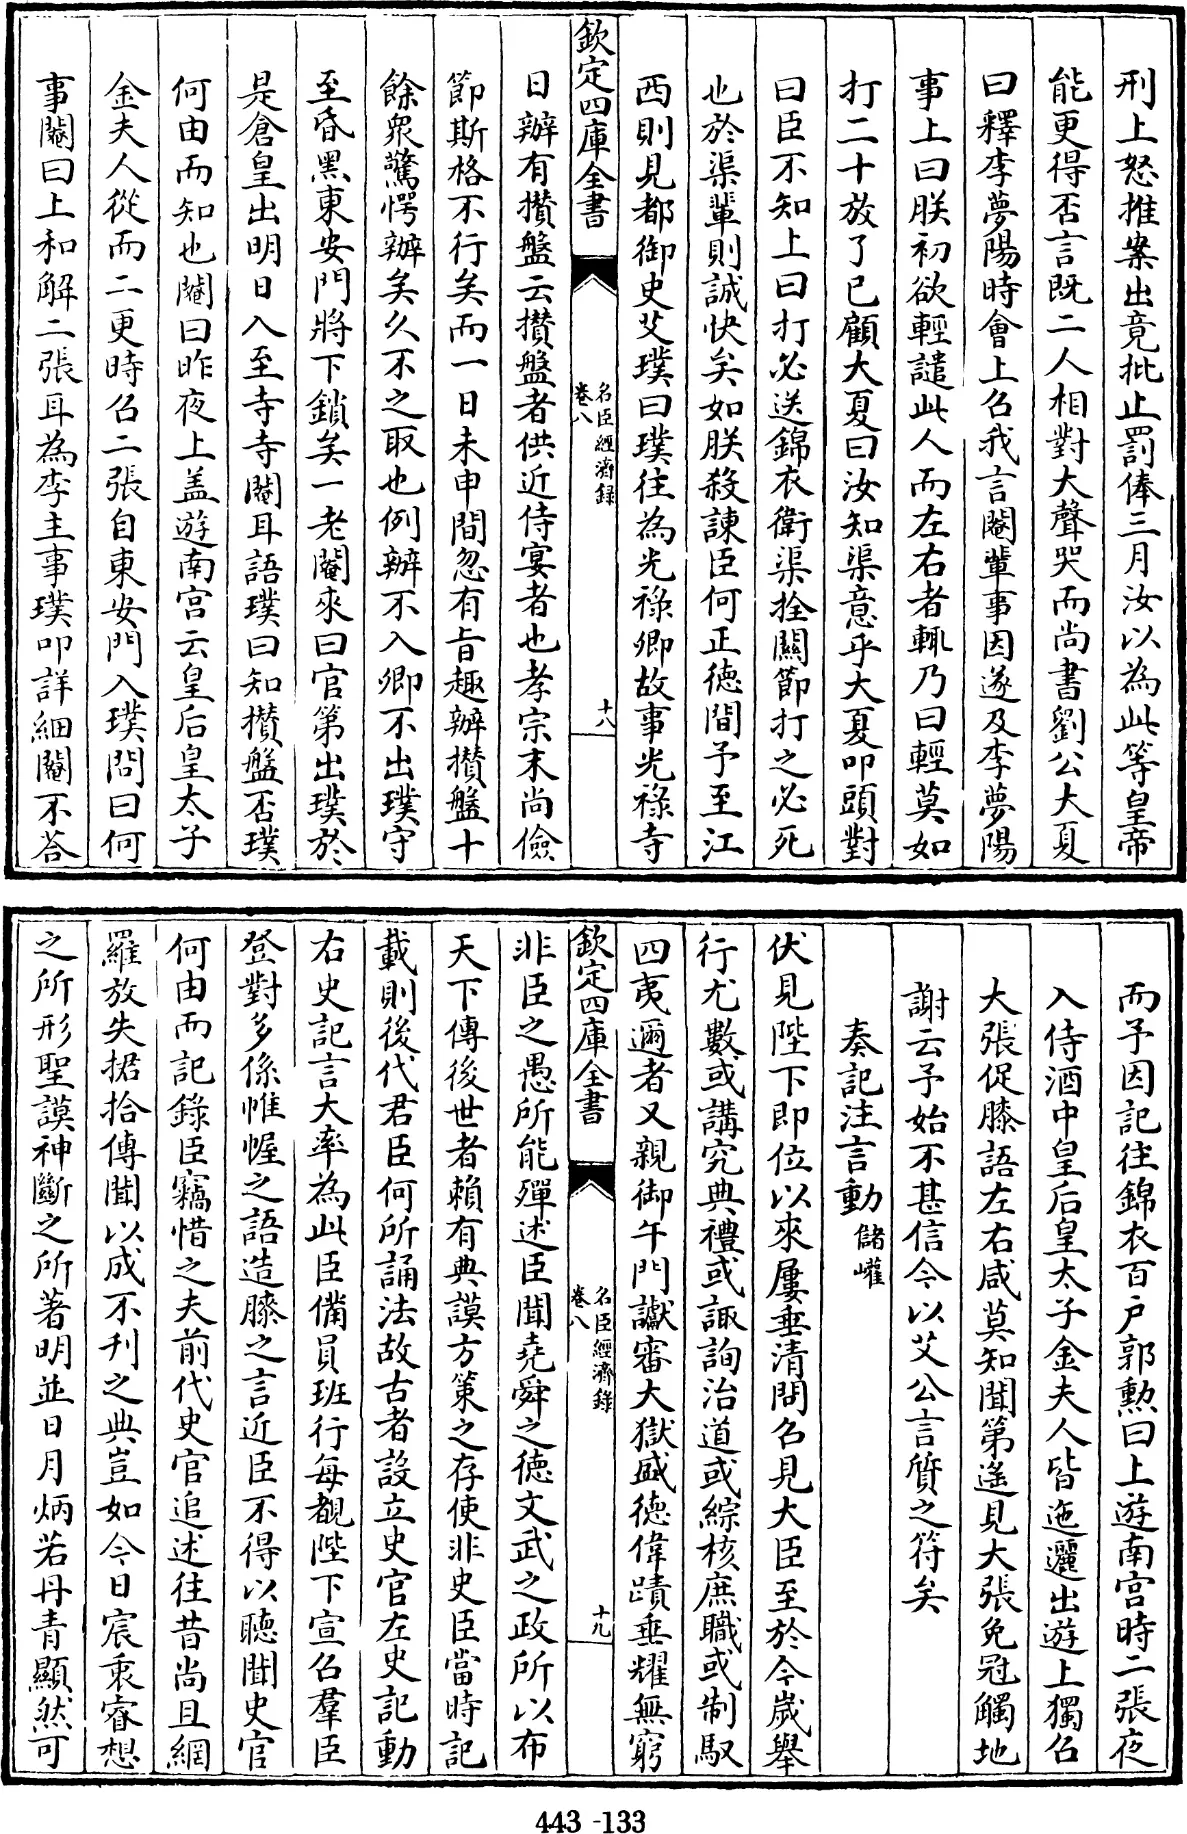 刑上怒推案出竟批止罰俸三月汝以為此等皇帝
能更得否言既二人相對大聲哭而尚書劉公大夏
曰釋李夢陽時會上召我言閹輩事因遂及李夢陽
事上曰朕初欲輕譴此人而左右者輒乃曰輕莫如
打二十放了已顧大夏曰汝知渠意乎大夏叩頭對
曰臣不知上曰打必送錦衣衛渠拴關節打之必死
也於渠輩則誠快矣如朕殺諫臣何正徳間予至江
西則見都御史艾璞曰璞往為光祿卿故事光祿寺
欽定四庫全書
名臣經濟録
卷八
十八
日辦有攅盤云攅盤者供近侍宴者也孝宗末尚儉
節斯格不行矣而一日未申間忽有旨趣辦攅盤十
餘衆驚愕辦矣久不之取也例辦不入卿不出璞守
至昏黒東安門將下鎖矣一老閹來曰官第出璞於
是倉皇出明日入至寺寺閹耳語璞曰知攅盤否璞
何由而知也閹曰昨夜上盖遊南宫云皇后皇太子
金夫人從而二更時召二張自東安門入璞問曰何
事閹曰上和解二張耳為李主事璞叩詳細閹不荅
而予因記往錦衣百户郭勲曰上遊南宫時二張夜
入侍酒中皇后皇太子金夫人皆迤邐出遊上獨召
大張促膝語左右咸莫知聞第遥見大張免冠觸地
謝云予始不甚信今以艾公言質之符矣
奏記注言動 儲巏
伏見陛下即位以來屢垂清問召見大臣至於今嵗舉
行尤數或講究典禮或諏詢治道或綜核庶職或制馭
四夷邇者又親御午門讞審大獄盛徳偉蹟垂耀無窮
欽定四庫全書
名臣經濟録
卷八
十九
非臣之愚所能殫述臣聞堯舜之徳文武之政所以布
天下傳後世者賴有典謨方策之存使非史臣當時記
載則後代君臣何所誦法故古者設立史官左史記動
右史記言大率為此臣備員班行每覩陛下宣召羣臣
登對多係帷幄之語造膝之言近臣不得以聽聞史官
何由而記録臣竊惜之夫前代史官追述往昔尚且網
羅放失捃拾傳聞以成不刊之典豈如今日宸衷睿想
之所形聖謨神斷之所著明並日月炳若丹青顯然可
443-133